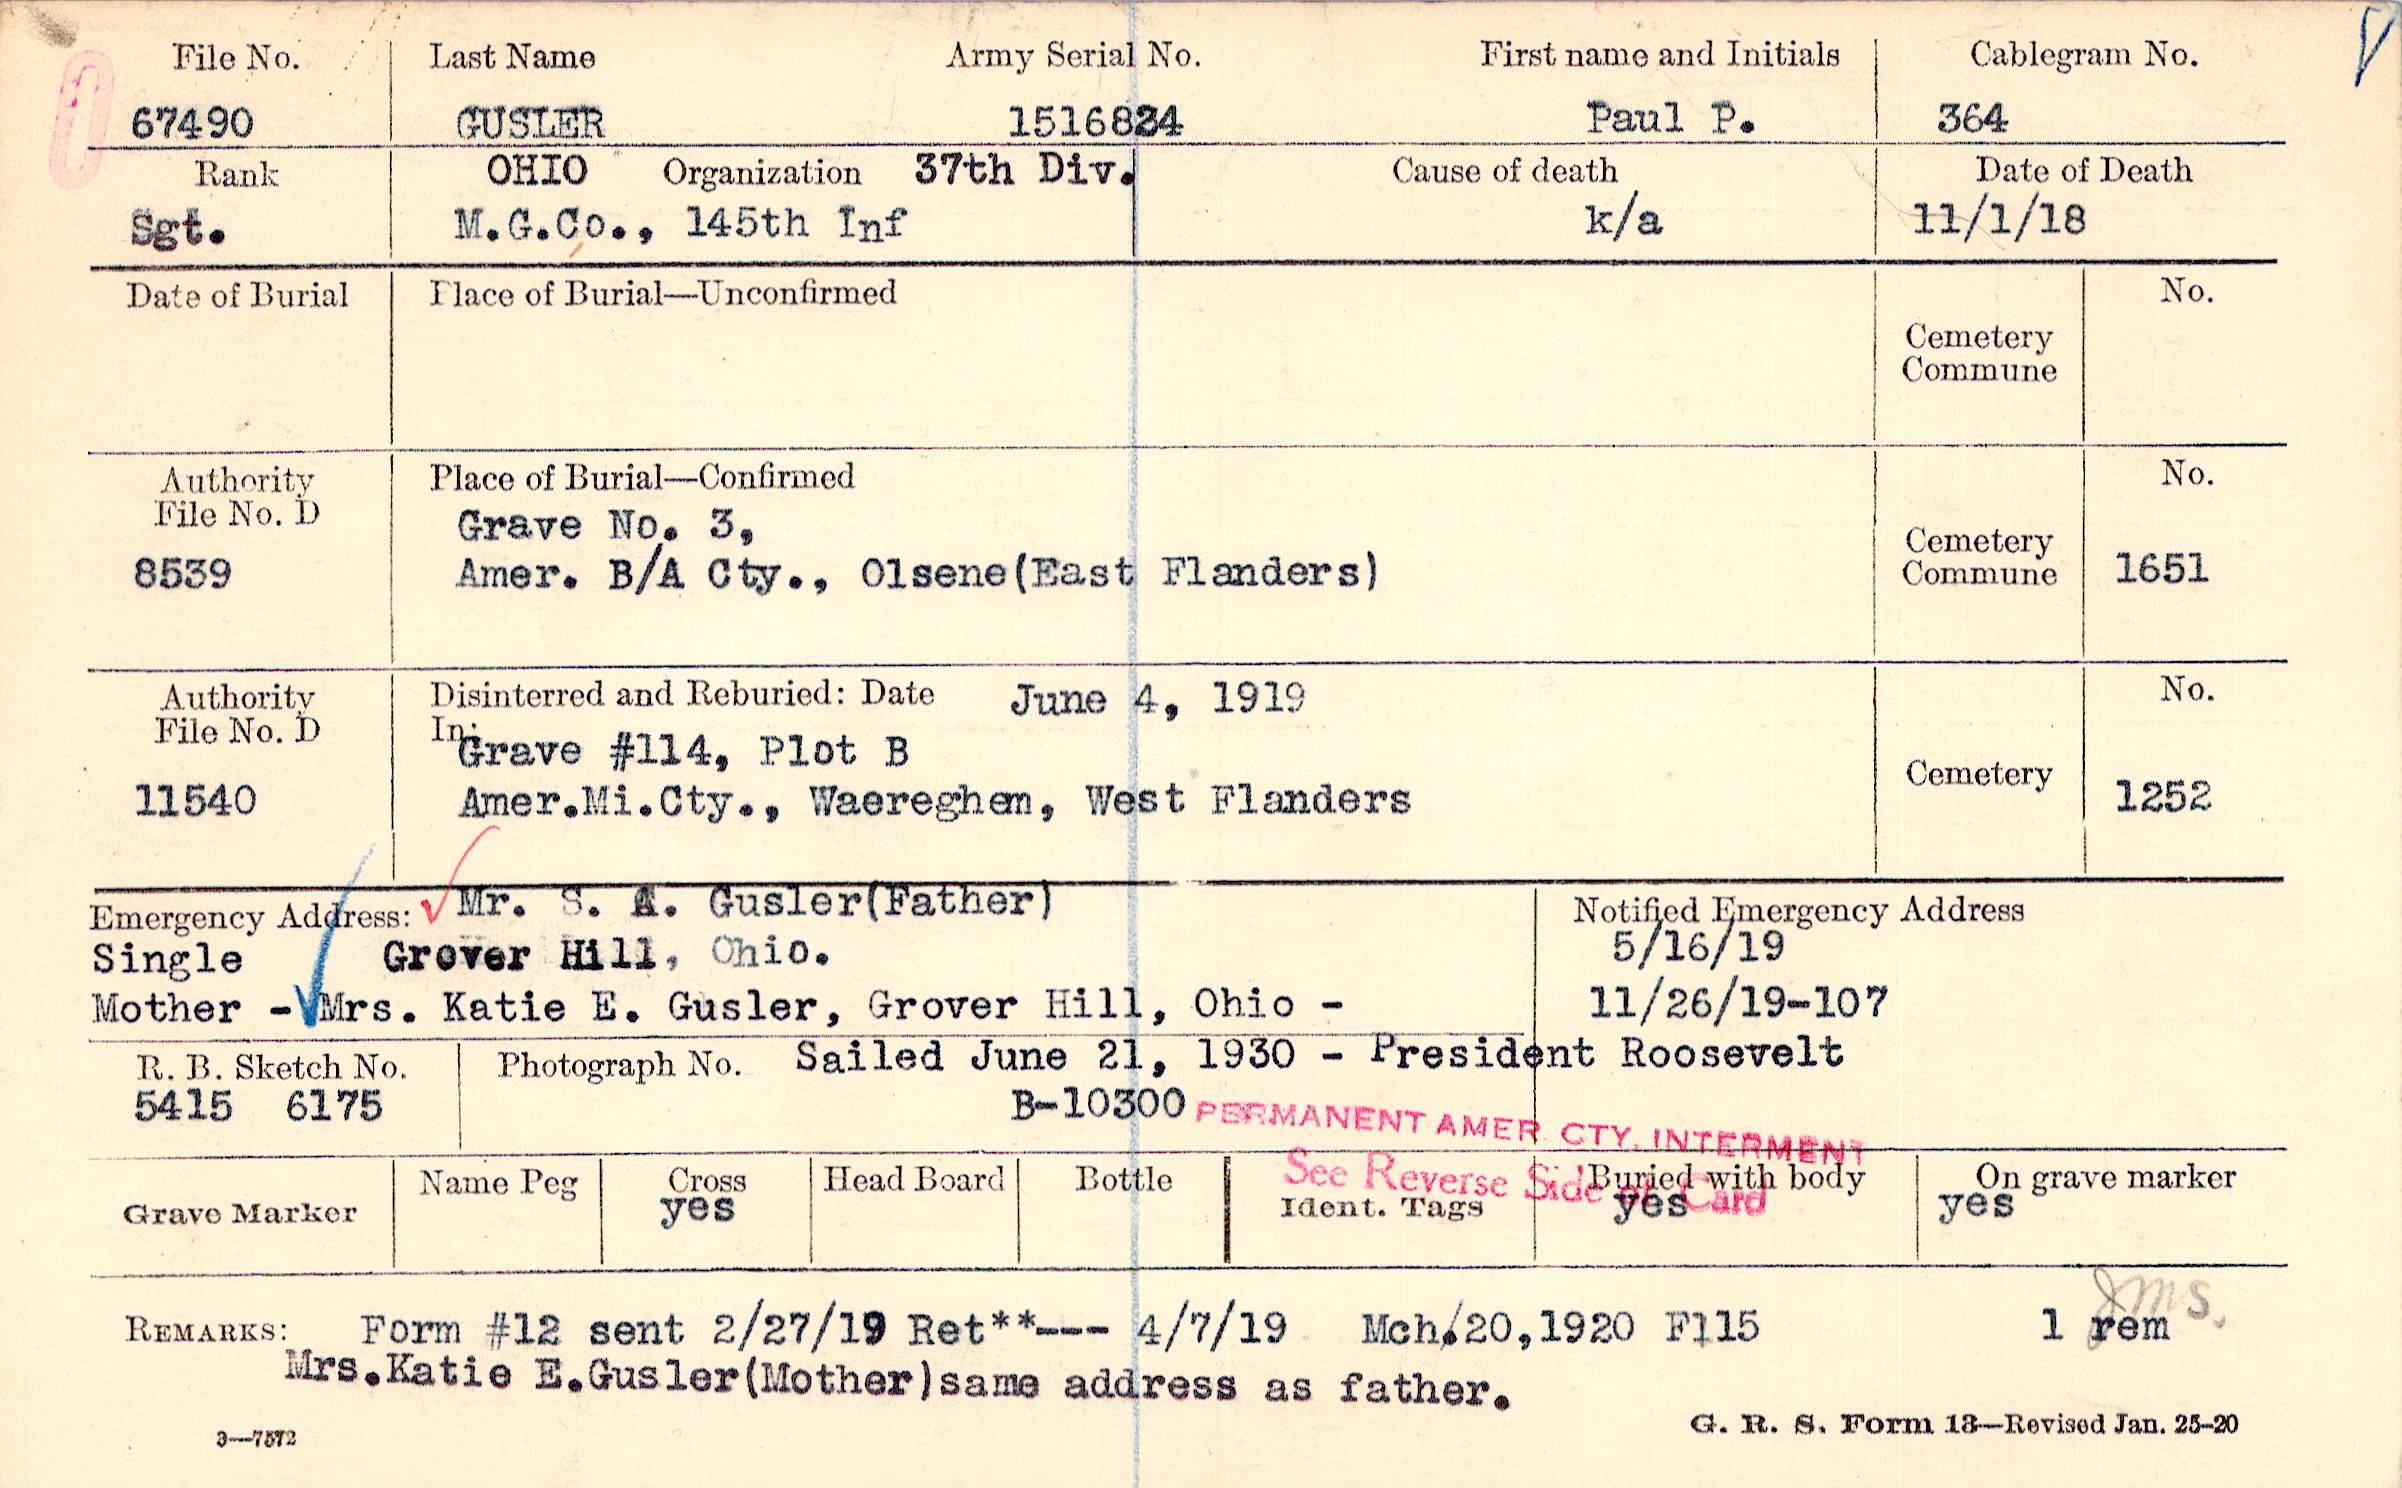 File No. Last Name Army Serial No. First name and Initials Cablegram No.
67490 GUSLER 1516824 Paul P. 364
Rank OHIO Organization 37th Div. Cause of death Date of Death
Sgt. M.G.Co., 145th Inf k/a 11/1/18
Date of Burial Place of Burial—Unconfirmed No.
Cemetery
Commune
Authority Place of Burial—Confirmed No.
File No. D Grave No. 3,
8539 Amer. B/A Cty., Olsene(East Flanders) Cemetery Commune 1651
Authority Disinterred and Reburied: Date June 4, 1919 No.
File No. D In: Grave #114, Plot B
11540 Amer.Mi.Cty., Waereghem, West Flanders Cemetery 1252
Emergency Address: Mr. S. A. Gusler(Father) Notified Emergency Address
Single Grover Hill, Ohio. 5/16/19
Mother - Mrs. Katie E. Gusler, Grover Hill, Ohio - 11/26/19-107
R. B. Sketch No. Photograph No. Sailed June 21, 1930 - President Roosevelt
5415 6175 B-10300
PERMANENT AMER. CTY. INTERMENT
See Reverse Side of Card
Grave Marker Name Peg Cross Head Board Bottle Ident. Tags Buried with body On grave marker
yes yes yes
REMARKS: Form #12 sent 2/27/19 Ret**--- 4/7/19 Mch.20,1920 F115 1 rem
JMS.
Mrs.Katie E.Gusler(Mother)same address as father.
3—7572 G. R. S. Form 13—Revised Jan. 25-20